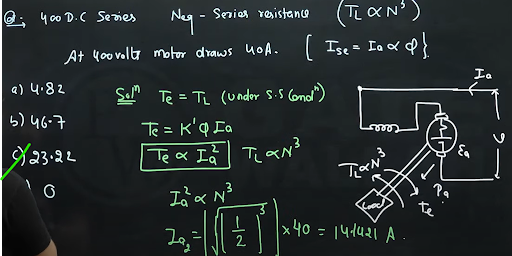 Q. 400 D.C Series Neq - Series resistance (TL ∝ N³)
At 400 volts motor draws 40A. [ Ise = Ia ∝ φ }
a) 4.82
b) 46.7
c) 23.22
0
Solⁿ Te = TL (under s.s condⁿ)
Te = K' φ Ia
Te ∝ Ia² TL ∝ N³
Ia² ∝ N³
Ia2 = √[1/2]³ × 40 = 14.1421 A.
Ia
V
Ea
TL ∝ N³
Pa
te
Load